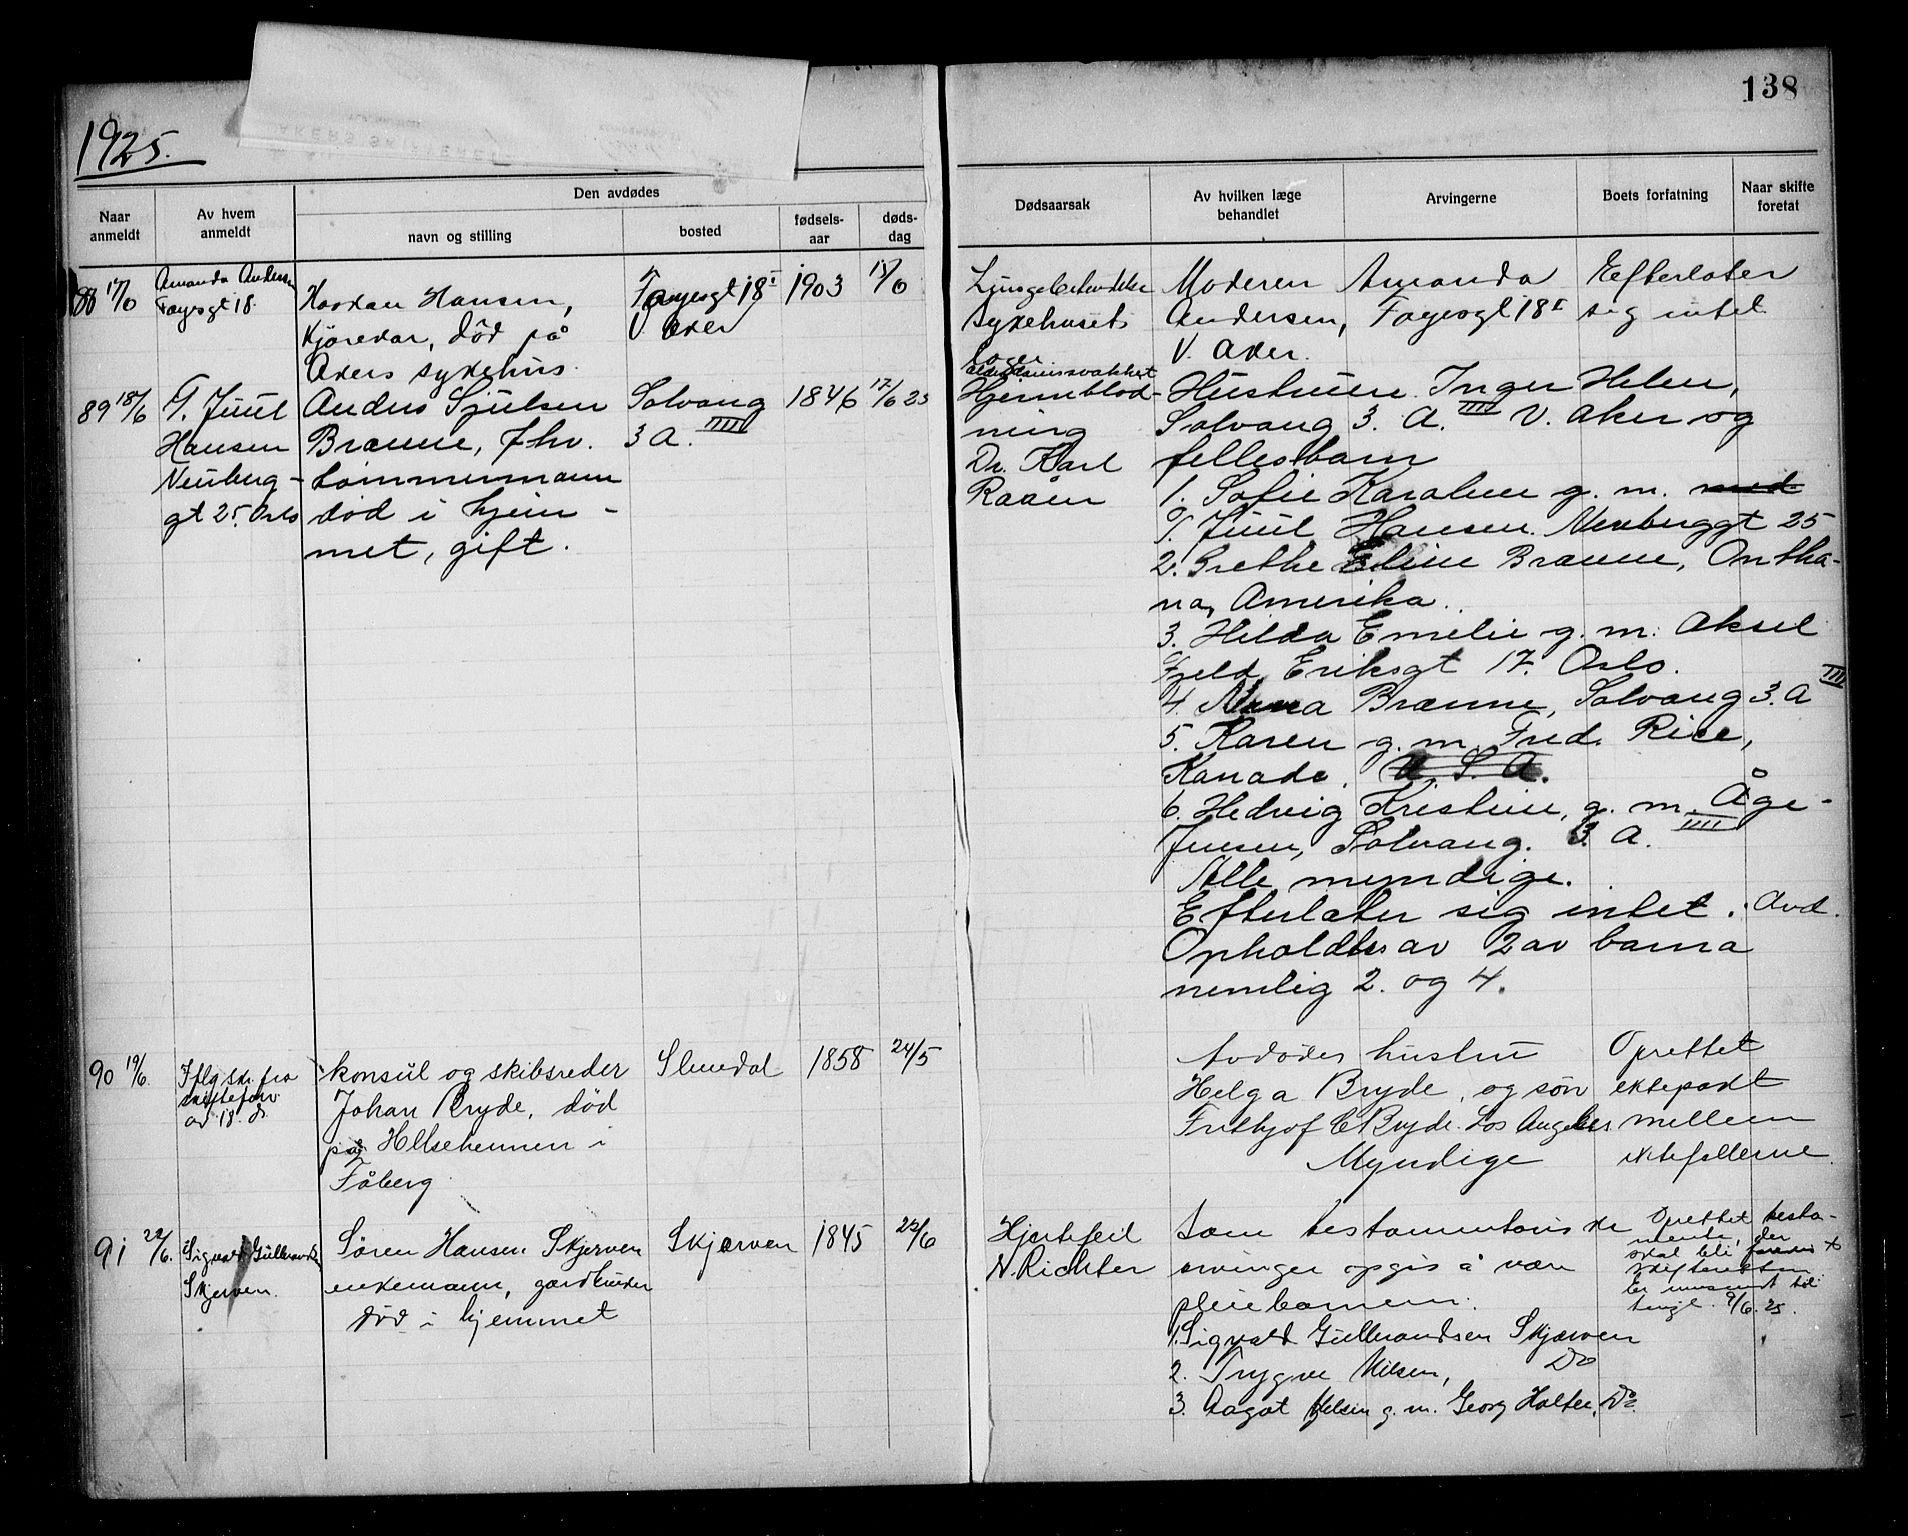 138
1925.
Den avdødes
Naar anmeldt
Av hvem anmeldt
navn og stilling
bosted
fødsels-aar
døds-dag
Dødsaarsak
Av hvilken læge behandlet
Arvingerne
Boets forfatning
Naar skifte foretat
88 17/6
Amanda Andersen
Fayesgt 18.
Hansen,
Kjørekar, død på
Akers sykehus.
Fayesgt 18 I
V Aker
1903
Lungebetendelse
Sykehusets
læger
Moderen Amanda
Andersen, Fayesgt 18 I
V. Aker.
Efterlater
sig intet
89 18/6
T. Juul
Hansen
Neuberg-
gt 25. Oslo
Anders Sjulsen
Brænne, fhv.
tømmermann
død i hjem-
met, gift.
Solvang
3 A. IIII
1846
17/6 25
alderdomssvakhet
Hjerneblod-
ning
Dr. Karl
Raaen
Hustruen Inger Helene,
Solvang 3. A. IIII V. Aker og
fellesbarn
1. Sofie Karoline g. m. med
T. Juul Hansen. Neuberggt 25
2. Grethe Eline Brænne,
Amerika.
3. Hilda Emelie g. m. Aksel
Fjeld, Eriksgt 17. Oslo.
4. Brænne, Solvang 3. A III
5. Karen g. m. Fred. Rice,
Kanada. U. S. A.
6. Hedvig Kristine, g. m. Åge
Jensen, Solvang. 3. A. IIII
Alle myndige.
Efterlater sig intet. Avd.
Opholdtes av 2 av barna
nemlig 2. og 4.
90 19/6.
Iflg skr. fra
skifteforv.
av 18. ds.
konsul og skibsreder
Johan Bryde, død
på Helseheimen i
Fåberg
Slemdal
1858
24/5
Avdødes hustru
Helga Bryde, og søn
Frithjof C Bryde. Los Angeles
Myndige
Oprettet
ektepakt
mellem
ektefellerne.
91 22/6.
Sigvald Gulbrandsen
Skjerven.
Søren Hansen Skjerven
enkemann, gardbruker
død i hjemmet
Skjærven
1845
22/6
Hjertefeil
N. Richter
Som testamentariske
arvinger opgis å være
pleiebarnene:
1. Sigvald Gulbrandsen Skjærven
2. Trygve Nilsen, Do
3. Aagot Nielsen g. m. Georg Holter, Do.
Oprettet testa-
mente, der
skal bli
skifteretten
9/6.25.